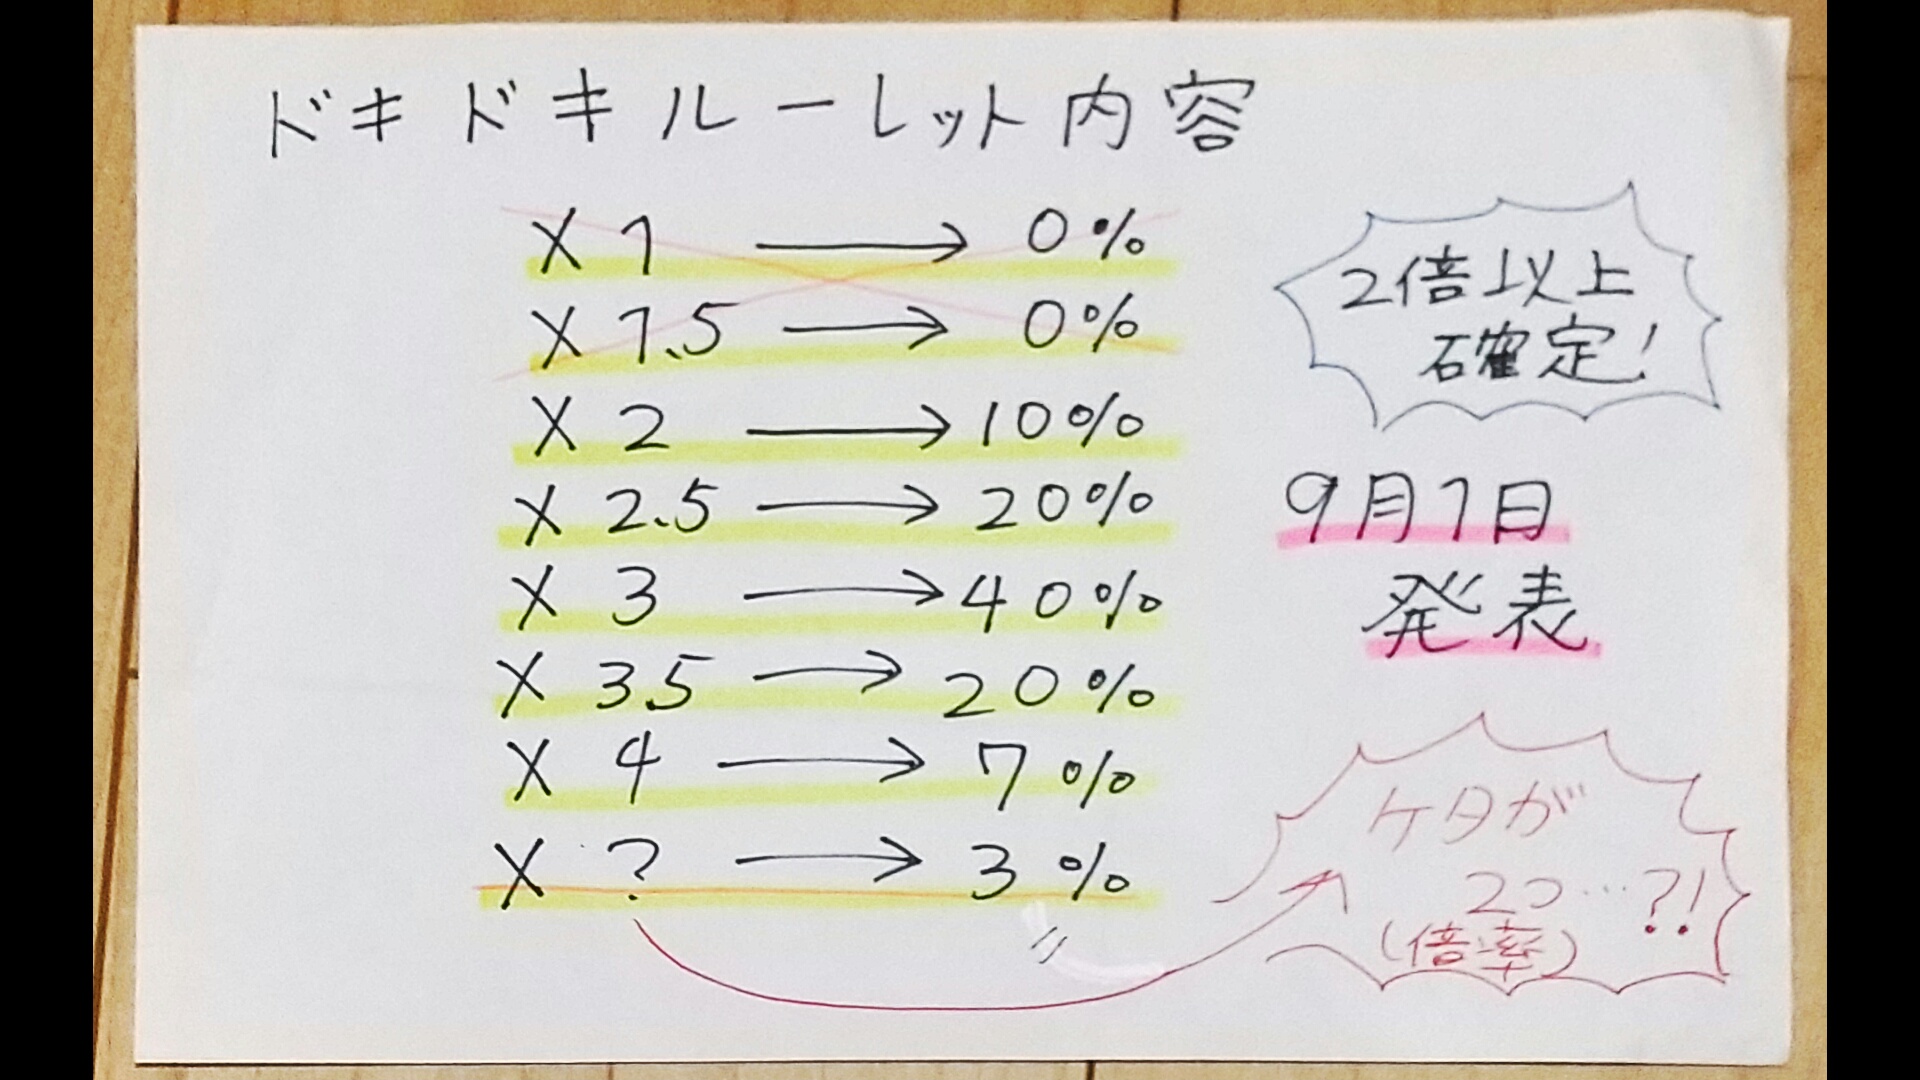 ドキドキルーレット内容
X 1 → 0%
X 1.5 → 0%
X 2 → 10%
X 2.5 → 20%
X 3 → 40%
X 3.5 → 20%
X 4 → 7%
X ? → 3%
2倍以上
確定!
9月1日
発表
ケタが
2つ…?!
(倍率)